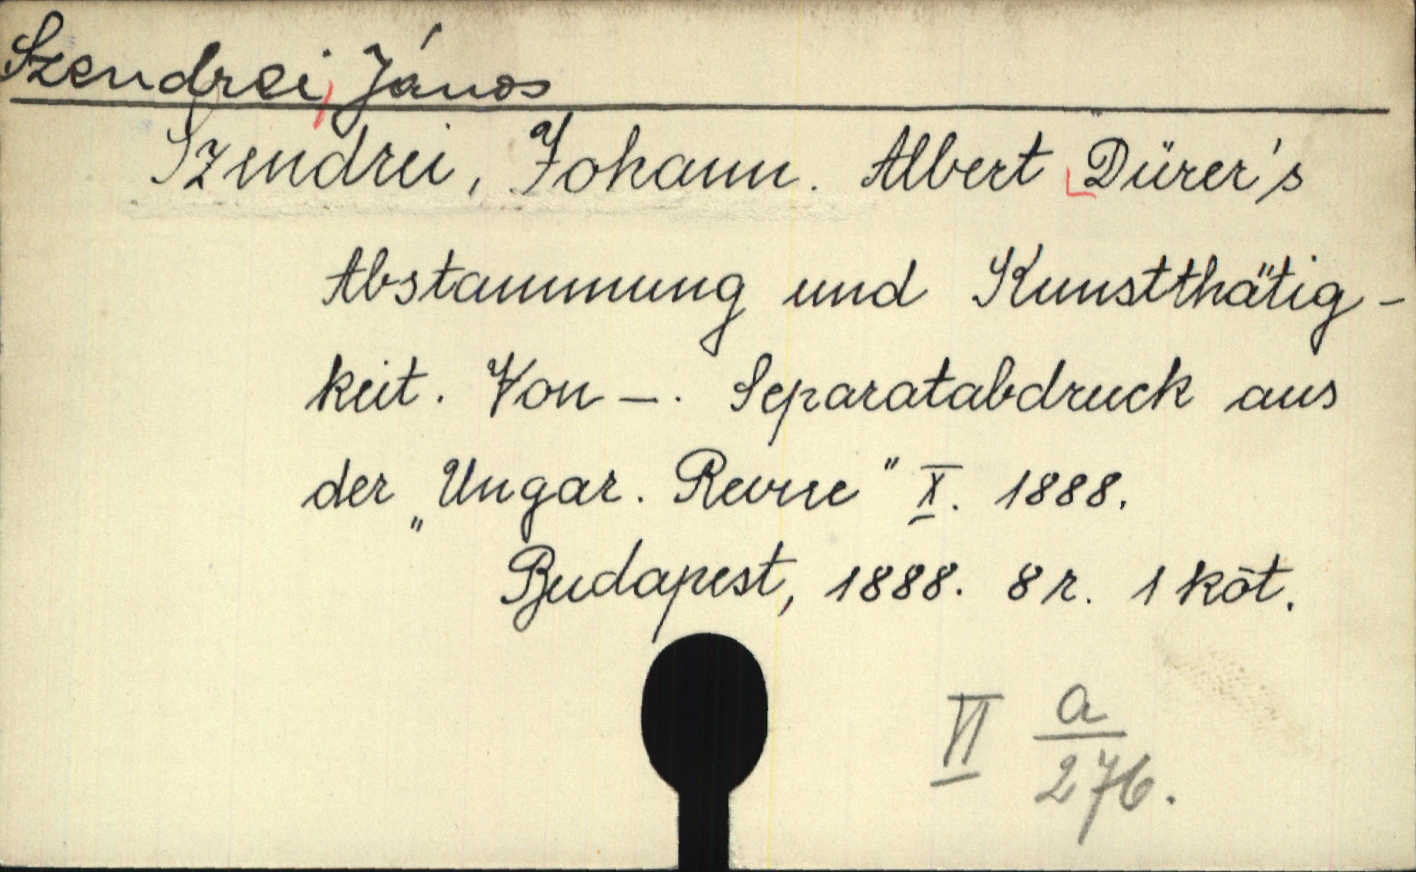 Szendrei, János
Szendrei, Johann. Albert Dürer's
Abstammung und Kunstthätig-
keit. Von —. Separatabdruck aus
der „Ungar. Revue" X. 1888.
Budapest, 1888. 8 r. 1 köt.
VI a/276.